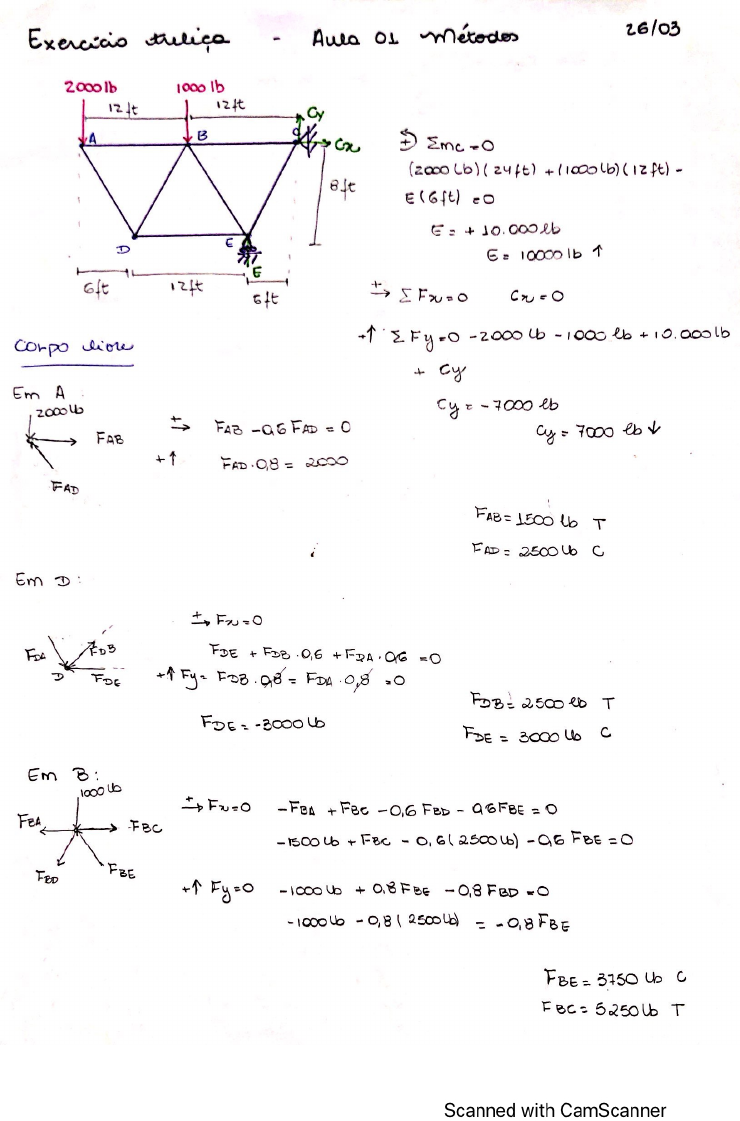 Exercício treliça - Aula 01 Métodos 26/03
2000 lb 1000 lb
12ft 12ft
Cy
A B C Cx
8ft
D E
E
6ft 12ft 6ft
+ ΣMc = 0
(2000 lb)(24ft) + (1000 lb)(12ft) -
E(6ft) = 0
E = + 10.000 lb
E = 10000 lb ↑
+→ ΣFx = 0 Cx = 0
+↑ ΣFy = 0 -2000 lb - 1000 lb + 10.000 lb
+ Cy
Cy = -7000 lb
Cy = 7000 lb ↓
Corpo livre
Em A
2000 lb
FAB
FAD
+→ FAB - 0,6 FAD = 0
+↑ FAD · 0,8 = 2000
FAB = 1500 lb T
FAD = 2500 lb C
Em D:
FDA FDB
D FDE
+→ Fx = 0
FDE + FDB · 0,6 + FDA · 0,6 = 0
+↑ Fy = FDB · 0,8 = FDA · 0,8 = 0
FDE = -3000 lb
FDB = 2500 lb T
FDE = 3000 lb C
Em B:
1000 lb
FBA FBC
FBD FBE
+→ Fx = 0 -FBA + FBC - 0,6 FBD - 0,6 FBE = 0
-1500 lb + FBC - 0,6(2500 lb) - 0,6 FBE = 0
+↑ Fy = 0 -1000 lb + 0,8 FBE - 0,8 FBD = 0
-1000 lb - 0,8(2500 lb) = -0,8 FBE
FBE = 3750 lb C
FBC = 5250 lb T
Scanned with CamScanner